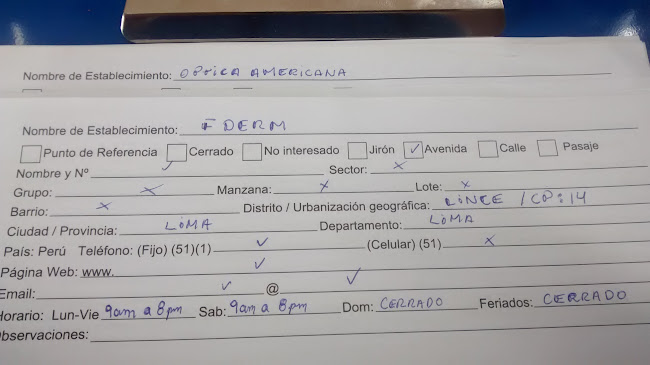 Nombre de Establecimiento: OPTICA AMERICANA
Nombre de Establecimiento: F DERM
Punto de Referencia Cerrado No interesado Jirón ✓ Avenida Calle Pasaje
Nombre y Nº ✓ Sector: x
Grupo: x Manzana: x Lote: x
Barrio: x Distrito / Urbanización geográfica: LINCE / CP: 14
Ciudad / Provincia: LIMA Departamento: LIMA
País: Perú Teléfono: (Fijo) (51)(1) ✓ (Celular) (51) x
Página Web: www. ✓
Email: ✓ @ ✓
Horario: Lun-Vie 9am a 8pm Sab: 9am a 8pm Dom: CERRADO Feriados: CERRADO
Observaciones: